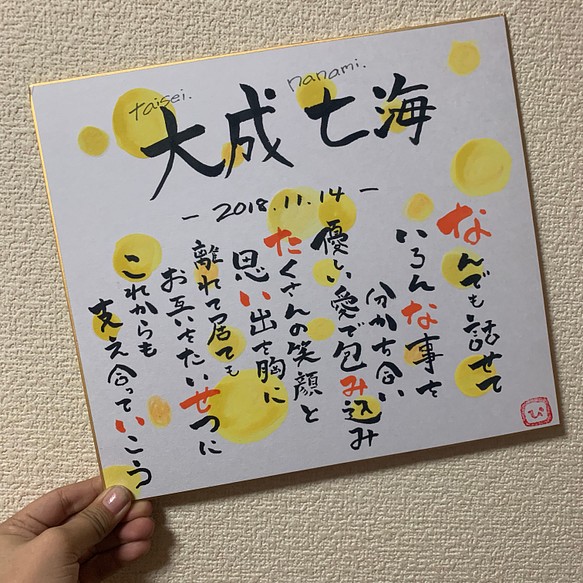 taisei. nanami.
大成 七海
- 2018.11.14 -
なんでも話せて
いろんな事を
分かち合い
優しい愛で包み込み
たくさんの笑顔と
思い出を胸に
離れて居ても
お互いをたいせつに
これからも
支え合っていこう
ぴ